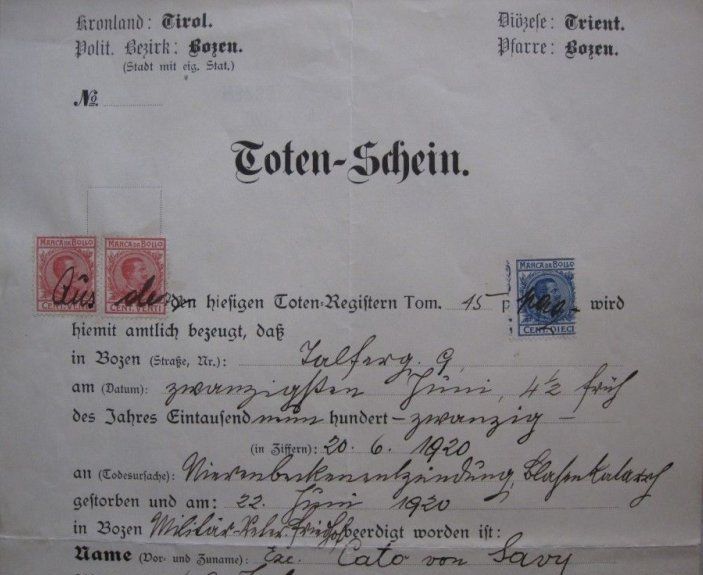 Kronland: Tirol.
Polit. Bezirk: Bozen.
(Stadt mit eig. Stat.)
Diözese: Trient.
Pfarre: Bozen.
No
Toten-Schein.
MARCA DA BOLLO
CENT. VENTI
MARCA DA BOLLO
CENT. VENTI
MARCA DA BOLLO
CENT. DIECI
Aus de den hiesigen Toten-Registern Tom. 15 pag. wird
hiemit amtlich bezeugt, daß
in Bozen (Straße, Nr.): Talferg. 9
am (Datum): zwanzigsten Juni, 4½ früh
des Jahres Eintausend neun hundert - zwanzig -
(in Ziffern): 20. 6. 1920
an (Todesursache): Nierenbeckenentzündung, Blasenkatarrh
gestorben und am: 22. Juni 1920
in Bozen Militär- Friedhof beerdigt worden ist:
Name (Vor- und Zuname): Exc. Cato von Savy